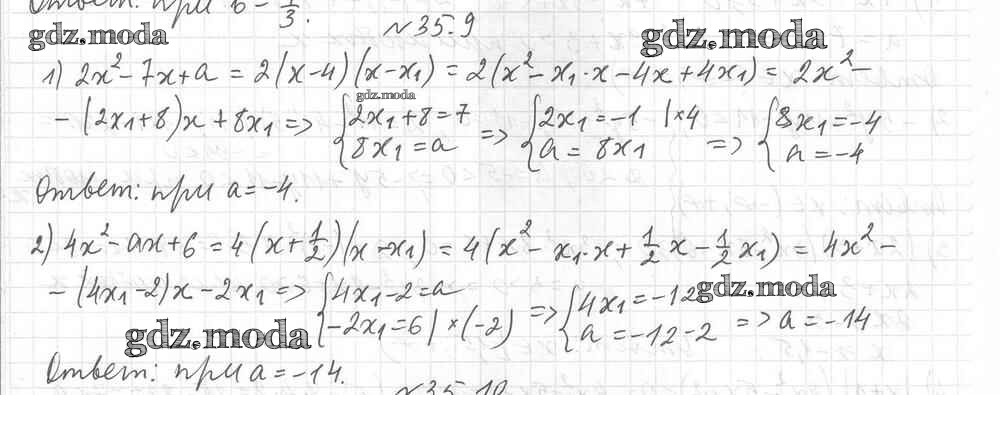 Ответ: при b = 1/3.
№35.9
gdz.moda
gdz.moda
1) 2x² - 7x + a = 2(x - 4)(x - x₁) = 2(x² - x₁·x - 4x + 4x₁) = 2x² -
gdz.moda
- (2x₁ + 8)x + 8x₁ => { 2x₁ + 8 = 7 8x₁ = a => { 2x₁ = -1 |×4 a = 8x₁ => { 8x₁ = -4 a = -4
Ответ: при a = -4.
2) 4x² - ax + 6 = 4(x + 1/2)(x - x₁) = 4(x² - x₁·x + 1/2 x - 1/2 x₁) = 4x² -
- (4x₁ - 2)x - 2x₁ => { 4x₁ - 2 = a -2x₁ = 6 | ×(-2) => { 4x₁ = -12 a = -12 - 2 => a = -14
gdz.moda
gdz.moda
Ответ: при a = -14.
№35.10